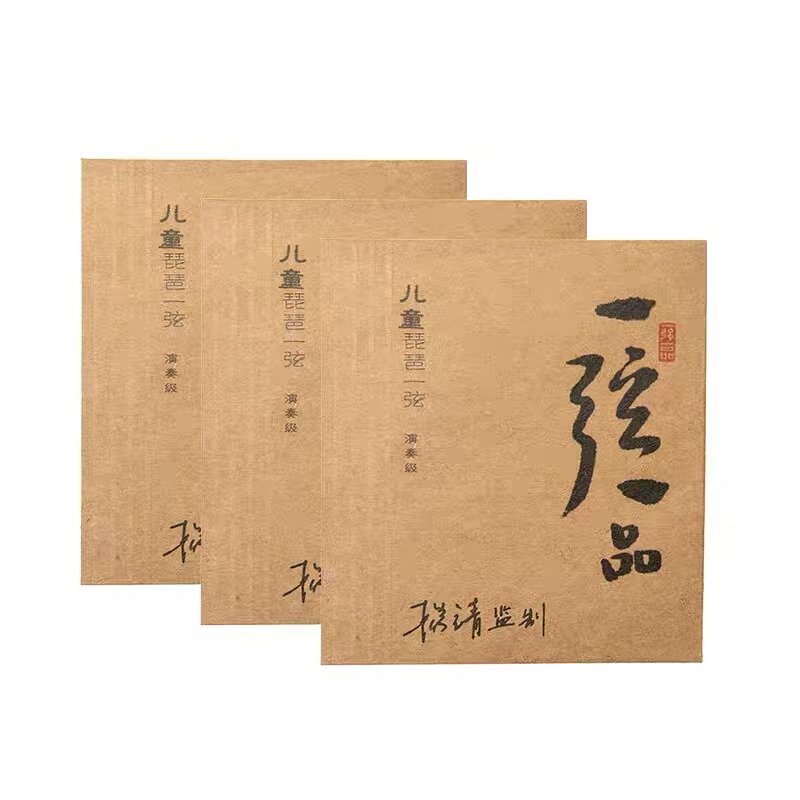 儿童琵琶一弦
演奏级
儿童琵琶一弦
演奏级
儿童琵琶一弦
演奏级
一弦一品
监制